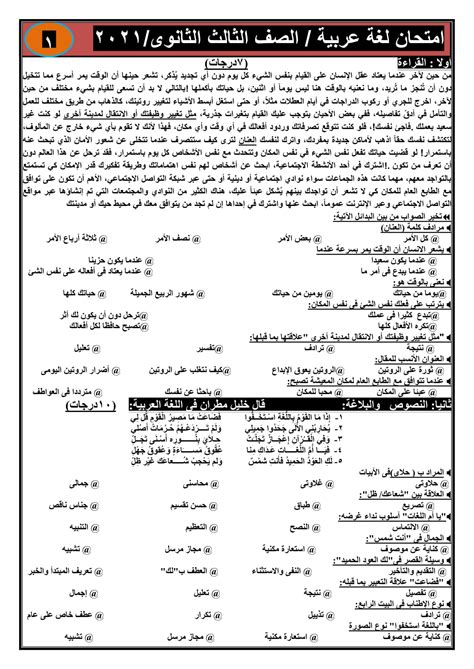 امتحان لغة عربية / الصف الثالث الثانوى/٢٠٢١
١
اولا : القراءة (٧درجات)
من حين لآخر عندما يعتاد عقل الإنسان على القيام بنفس الشيء كل يوم دون أي تجديد يُذكر، تشعر حينها أن الوقت يمر أسرع مما تتخيل
دون أن تُنجز ما تُريد، وما نعنيه بالوقت هنا ليس يوماً أو اثنين، بل حياتك بأكملها !بالتالي لا بد أن تسعى للقيام بشيء مختلف من حين
لآخر، اخرج للجري أو ركوب الدراجات في أيام العطلات مثلاً، أو حتى استغل أبسط الأشياء لتغيير روتينك، كالذهاب من طريق مختلف للعمل
والتأمل في أدق تفاصيله، ففي بعض الأحيان يتوجب عليك القيام بتغيرات جذرية، مثل تغيير وظيفتك أو الانتقال لمدينة أخرى لو كنت غير
سعيد بعملك .فاجئ نفسك!، فلو كنت تتوقع تصرفاتك وردود أفعالك في أي وقت وأي مكان، فهذا لأنك لا تقوم بأي شيء خارج عن المألوف،
لتكتشف نفسك حقاً اذهب لأماكن جديدة بمفردك، واترك لنفسك العنان لترى كيف ستتصرف عندما تتخلى عن شعور الأمان الذي تبحث عنه
باستمرار! لو قضيت حياتك تفعل نفس الشيء في نفس المكان وتتحدث مع نفس الأشخاص كل يوم باستمرار، فقد ترحل عن هذا العالم دون
أن تعرف من تكون .!اشترك في أحد الأنشطة الاجتماعية، ابحث عن أشخاص لهم نفس اهتماماتك وطريقة تفكيرك قدر الإمكان كي تستمتع
بالتواجد معهم، مهما كانت هذه الجماعات سواء نوادي اجتماعية أو دينية أو حتى عبر شبكة التواصل الاجتماعي، الأهم أن تكون على توافق
مع الطابع العام للمكان كي لا تشعر أن تواجدك بينهم يُشكل عبئاً عليك، هناك الكثير من النوادي والمجتمعات التي تم إنشاؤها عبر مواقع
التواصل الاجتماعي وعبر الإنترنت عموماً، ابحث عنها واشترك في إحداها إن لم تجد ما يلائمك في محيط حيك أو مدينتك
تخير الصواب من بين البدائل الآتية:
مرادف كلمة (العنان)
@ كل الأمر @ بعض الأمر @ نصف الأمر @ ثلاثة أرباع الأمر
يشعر الانسان أن الوقت يمر بسرعة عندما
@ عندما يكون سعيدا @ عندما يبدع فى أمر ما @ عندما يكون حزينا @ عندما يعتاد فى أفعاله على نفس الشئ
نعنى بالوقت هو:
@يوما من حياتك @ يومين من حياتك @ شهور الربيع الجميلة @ حياتك كلها
يترتب على فعلك نفس الشئ فى نفس المكان:
@تبدع كثيرا فى عملك @ترحل دون أن يكون لك أثر @تكره الأفعال كلها @تصبح حافظا لكل أفعالك
"مثل تغيير وظيفتك أو الانتقال لمدينة أخرى "علاقتها بما قبلها:
@ نتيجة @ ترادف @تفسير @ تعليل
العنوان الأنسب للمقال:
@ ثورة على الروتين @الروتين يعوق الإبداع @كيف نتغلب على الروتين @ أضرار الروتين
عندما تتوافق مع الطابع العام لمكان المعيشة تصبح:
@ عبئا على المكان @ محبا للمكان @ باحثا عن نفسك @ مترددا فى العواطف
ثانيا: النصوص والبلاغة: قال خليل مطران فى اللغة العربية: (١٠درجات)
١- إذا ما القوم باللغة استخفوا فضاعت ما مصير القوم قل لي
المراد ب ( حلاي)فى الأبيات
@ حلاوتى @ غلاوتى @ محاسنى @ جمالى
العلاقة بين "شعاعك/ ظل":
@ تصريع @ طباق @ حسن تقسيم @ جناس ناقص
"يا أم اللغات" أسلوب نداء غرضه:
@ الالتماس @ النصح @ التعظيم @ التنبيه
الجمال فى "أنت شمس":
@ كناية عن موصوف @ استعارة مكنية @ مجاز مرسل @ تشبيه
وسيلة القصر فى"لك العود الحميد":
@ التقديم والتأخير @ النفى والاستثناء @ العطف ب"لك" @ تعريف المبتدأ والخبر
"فضاعت" علاقة التعبير بما قبله:
@ ترادف @ نتيجة @ تعليل @ إجمال
نوع الإطناب فى البيت الرابع:
@ ترادف @ تذييل @ تكرار @ عطف خاص على عام
"باللغة استخفوا" نوع الصورة
@ كناية عن موصوف @ استعارة مكنية @ مجاز مرسل @ تشبيه